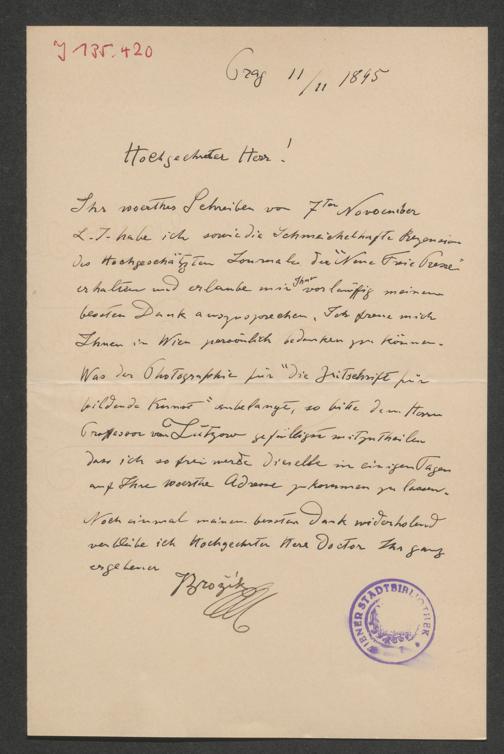 J 135.420
Prag 11/11 1895
Hochgeehrter Herr!
Ihr werthes Schreiben von 7ten November
l. J. habe ich sowie die Schmeichelhafte Rezension
des Hochgeschätzten Journals der "Neue Freie Presse"
erhalten und erlaube mir Ihnen vorläuffig meinen
besten Dank auszusprechen. Ich freue mich
Ihnen in Wien persönlich bedanken zu können.
Was der Photographie für "die Zeitschrift für
bildende Kunst" anbelangt, so bitte dem Herrn
Proffessor von Lützow gefälligst mitzutheilen
dass ich so frei werde dieselbe in einigen Tagen
auf Ihre werthe Adresse zukommen zu lassen.
Noch einmal meinen besten Dank widerholend
verbleibe ich Hochgeehrter Herr Doctor Ihr ganz
ergebener
Brožík
WIENER STADTBIBLIOTHEK